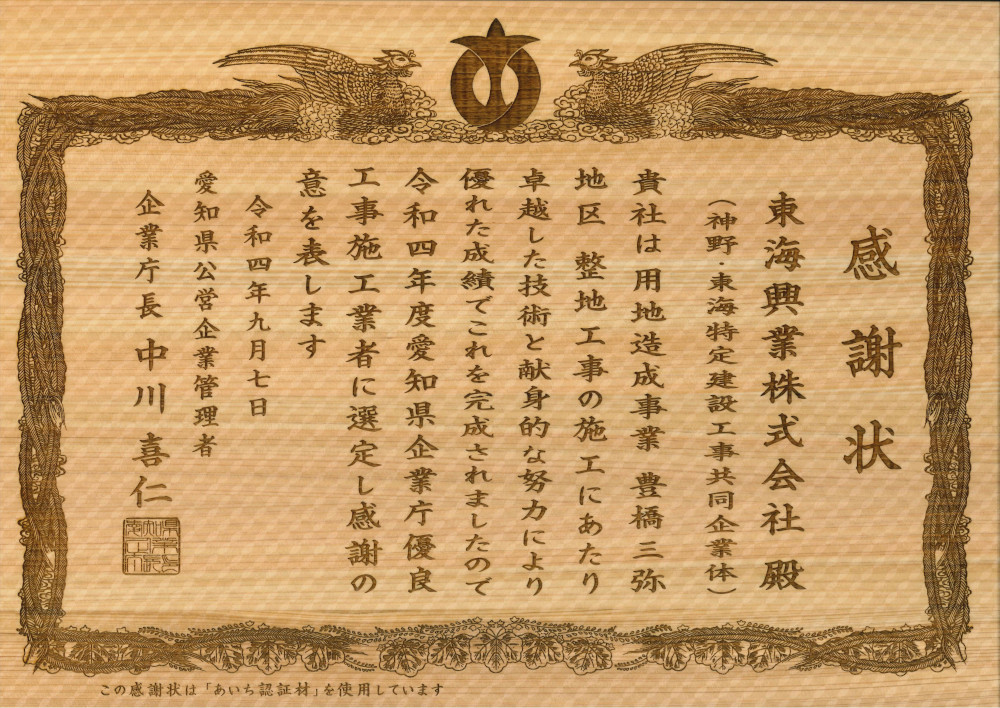 感謝状
東海興業株式会社 殿
（神野・東海特定建設工事共同企業体）
貴社は用地造成事業 豊橋三弥
地区 整地工事の施工にあたり
卓越した技術と献身的な努力により
優れた成績でこれを完成されましたので
令和四年度愛知県企業庁優良
工事施工業者に選定し感謝の
意を表します
令和四年九月七日
愛知県公営企業管理者
企業庁長 中川喜仁
この感謝状は「あいち認証材」を使用しています